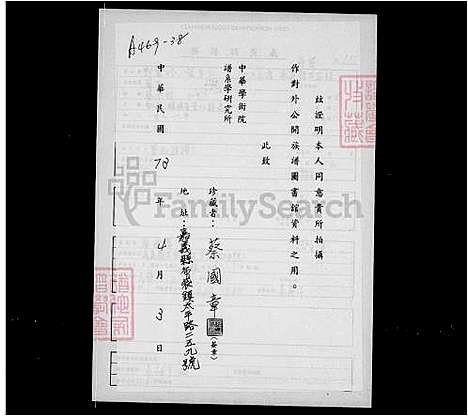 A469-38
茲證明本人同意貴所拍攝
作對外公開族譜圖書館資料之用。
此致
中華學術院
譜系學研究所
珍藏者：蔡國章（簽章）
地址：嘉義縣布袋鎮太平路二五九號
中華民國 78 年 4 月 3 日
FamilySearch